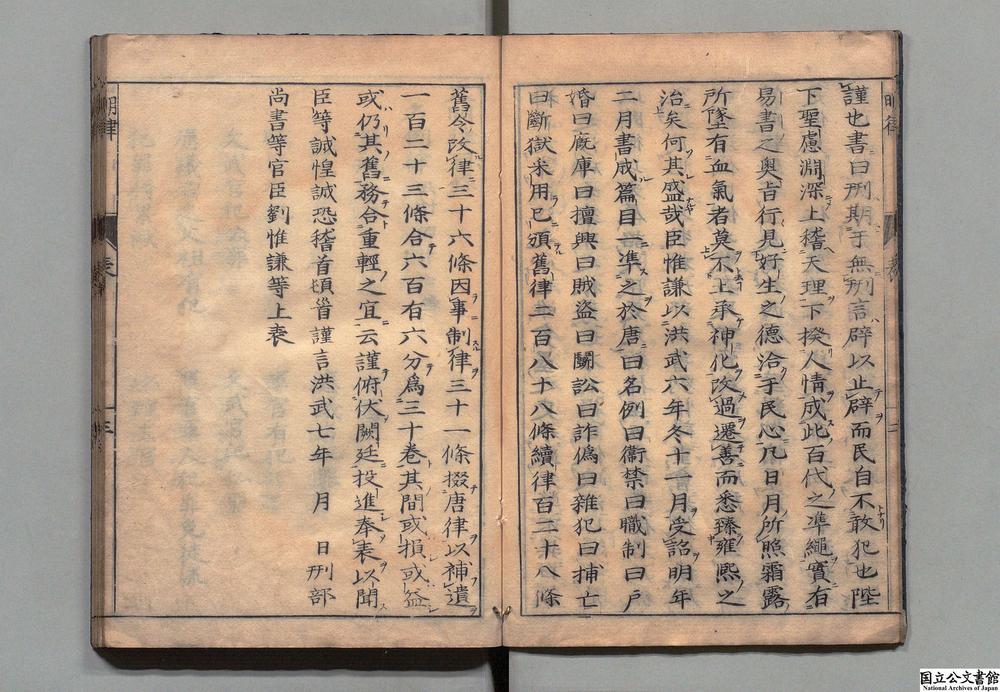 謹也書曰刑期于無刑言辟以止辟而民自不敢犯也陛
下聖慮淵深上稽天理下揆人情成此百代之準繩實有
易書之奥旨行見好生之德洽于民心凡日月所照霜露
所墜有血氣者莫不上承神化改過遷善而悉臻雍熙之
治矣何其盛哉臣惟謙以洪武六年冬十一月受詔明年
二月書成篇目一準之於唐曰名例曰衞禁曰職制曰戶
婚曰廐庫曰擅興曰賊盜曰鬭訟曰詐僞曰雜犯曰捕亡
曰斷獄采用已頒舊律二百八十八條續律百二十八條
舊令改律三十六條因事制律三十一條掇唐律以補遺
一百二十三條合六百有六分爲三十卷其間或損或益
或仍其舊務合重輕之宜云謹俯伏闕廷投進奉表以聞
臣等誠惶誠恐稽首頓首謹言洪武七年 月 日刑部
尚書等官臣劉惟謙等上表
明律
表
三
国立公文書館
National Archives of Japan